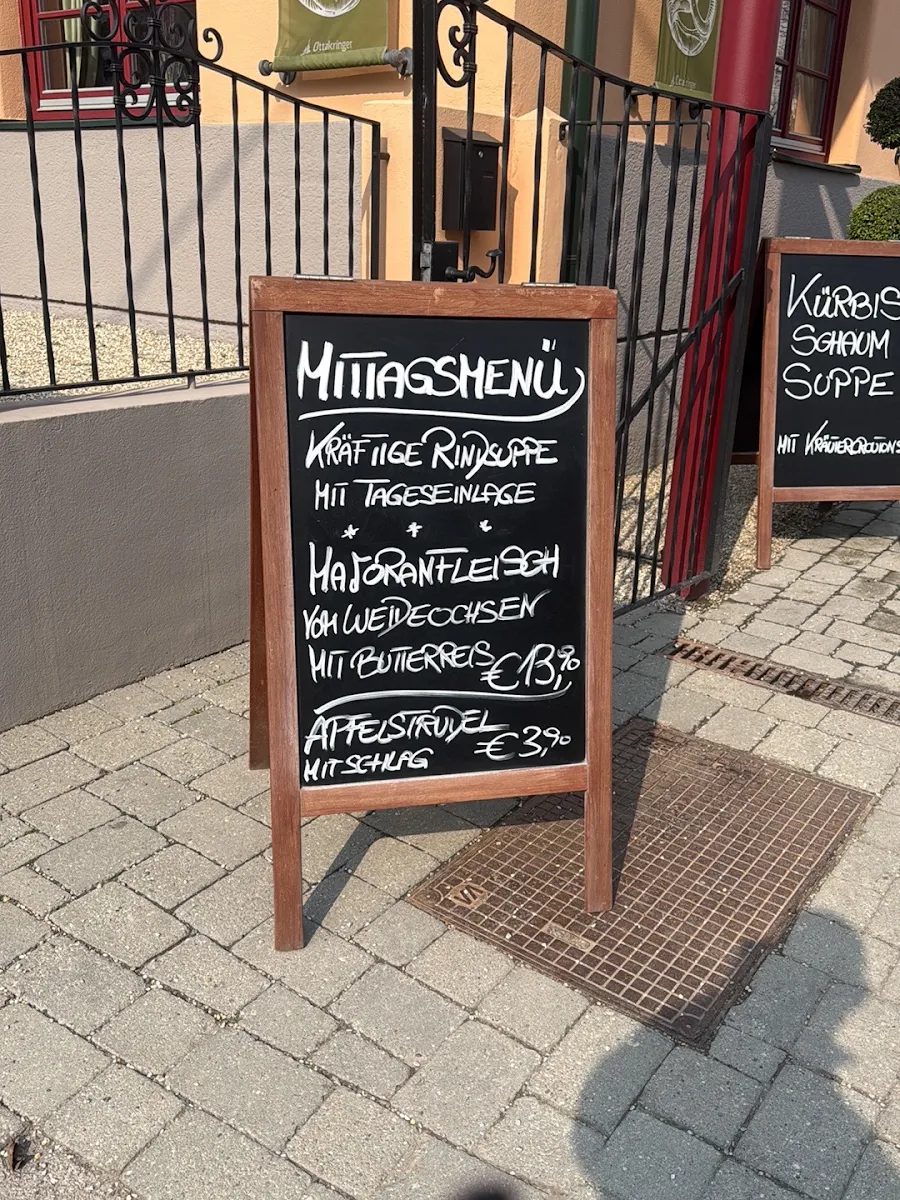 Ottakringer
MITTAGSMENÜ
KRÄFTIGE RINDSUPPE
MIT TAGESEINLAGE
* * *
MAJORANFLEISCH
VOM WEIDEOCHSEN
MIT BUTTERREIS € 13,90
APFELSTRUDEL
MIT SCHLAG € 3,90
KÜRBIS
SCHAUM
SUPPE
MIT KRÄUTERCROUTONS